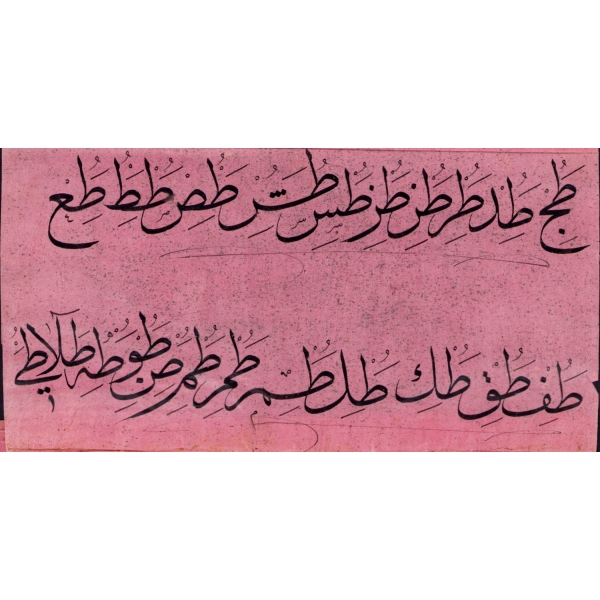 طج طد طر طز طز طس طش طص طط طع
طف طق طك طل طم طم طم طن طو طه طلا طي